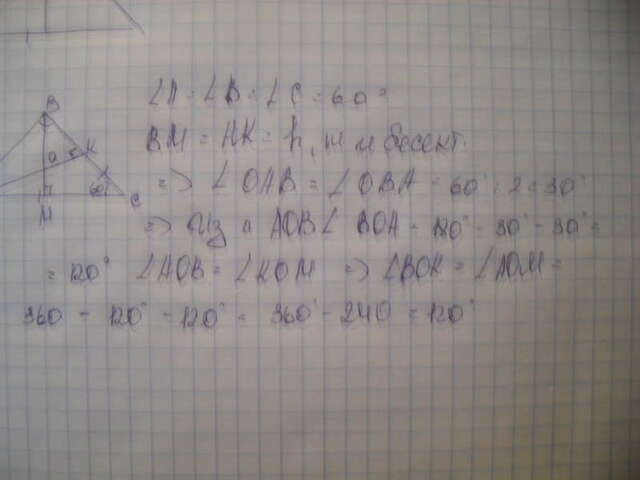 ∠A = ∠B = ∠C = 60°
BM = AK = h, и бессект.
=> ∠OAB = ∠OBA = 60° : 2 = 30°
=> Из △ AOB ∠BOA = 180° - 30° - 30° =
= 120° ∠AOB = ∠KOM => ∠BOK = ∠AOM =
360 - 120° - 120° = 360° - 240 = 120°
B
O
K
M
60°
C